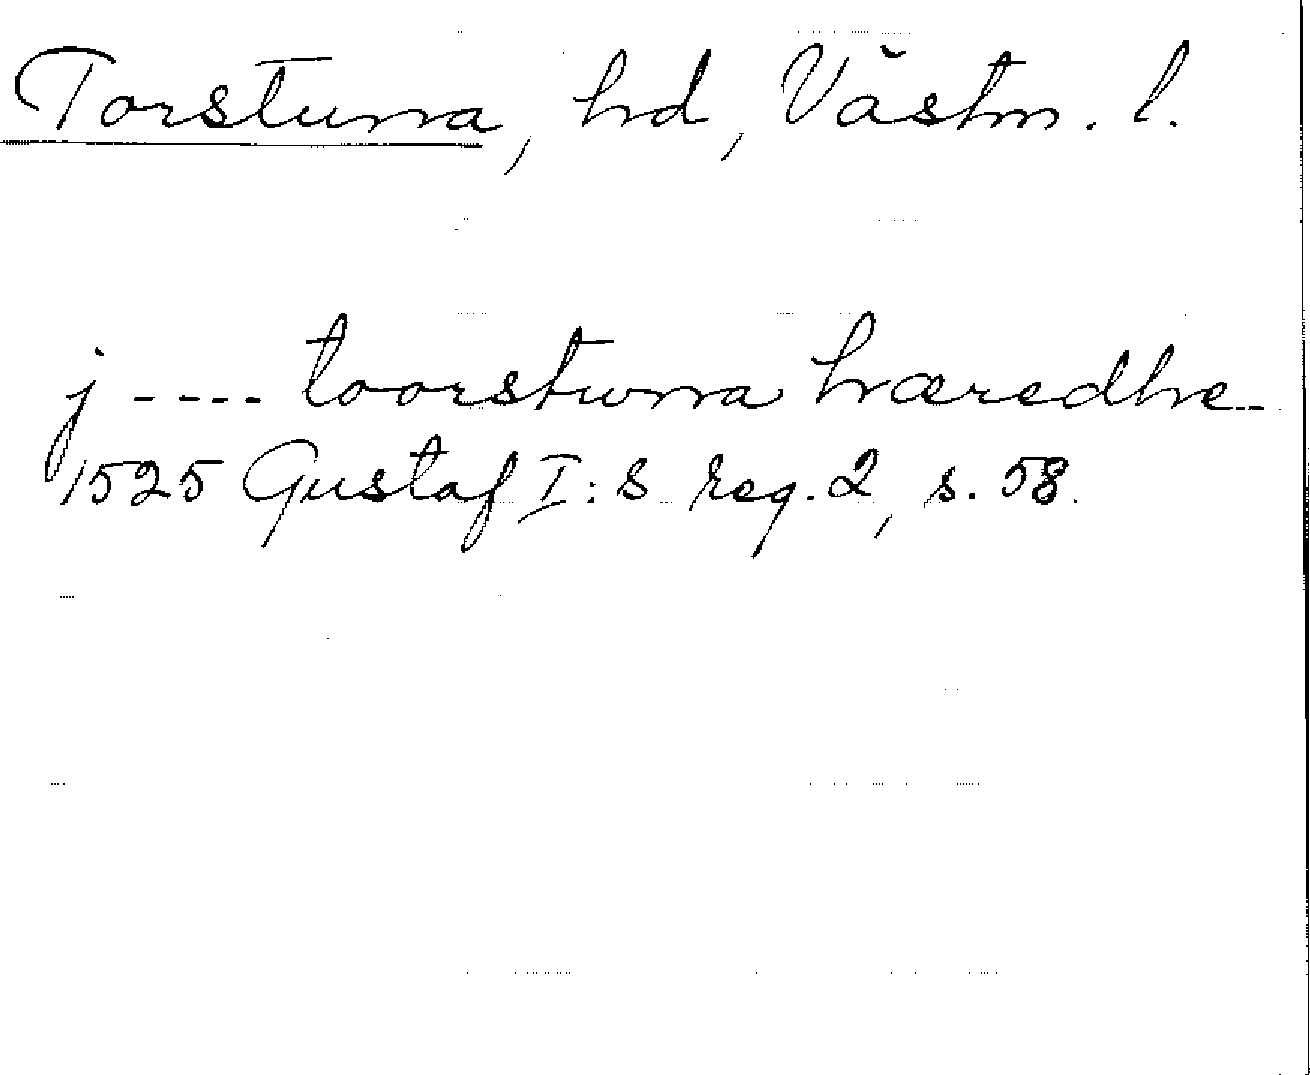 Torstuna, hd, Västm. l.
j ---- toorstuna hæredhe--
1525 Gustaf I:s reg. 2, s. 58.